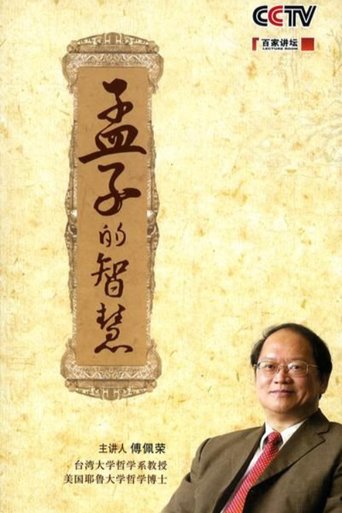 CCTV
百家讲坛
LECTURE ROOM
孟子的智慧
主讲人 傅佩荣
台湾大学哲学系教授
美国耶鲁大学哲学博士